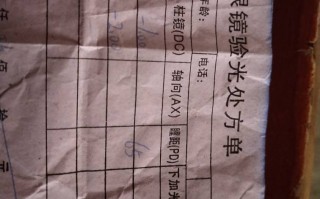 眼镜验光处方单
年龄: 电话:
柱镜(DC) 轴向(AX) 瞳距(PD) 下加光
佰 拾 元